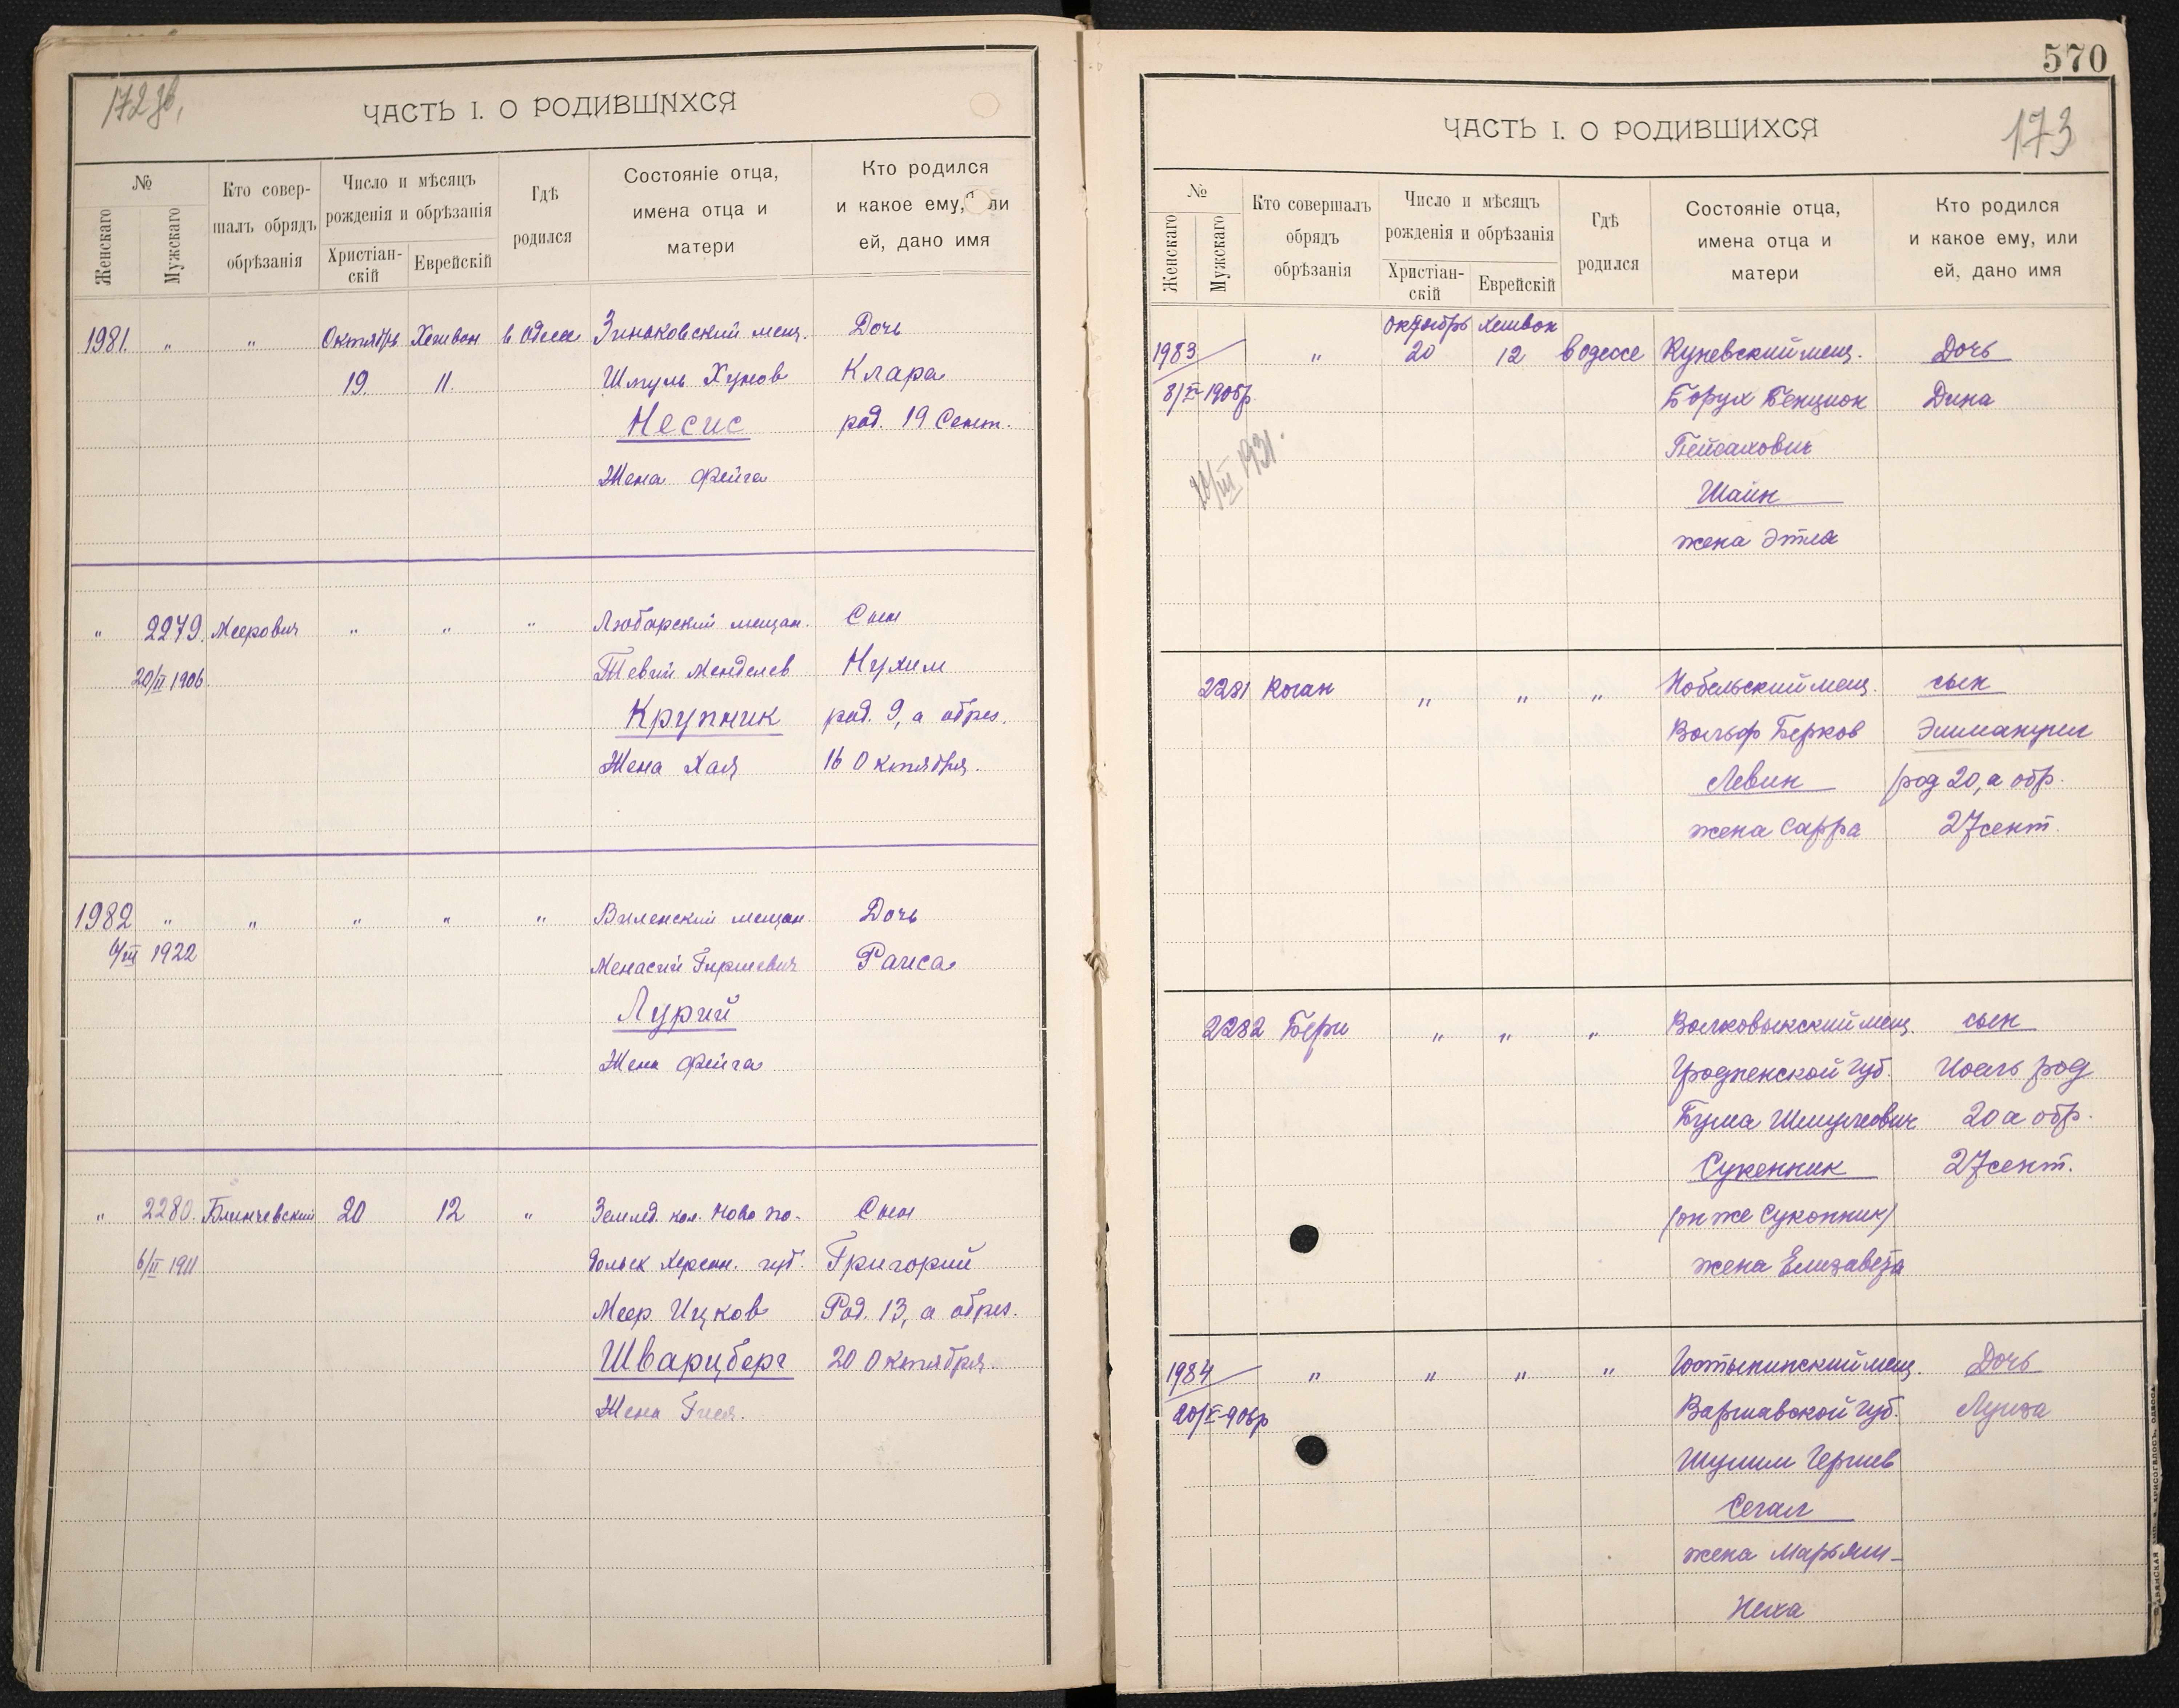 172 зв.
ЧАСТЬ I. О РОДИВШИХСЯ
№
Женскаго
Мужскаго
Кто совер-
шалъ обрядъ
обрѣзанія
Число и мѣсяцъ
рожденія и обрѣзанія
Христіан-
скій
Еврейскій
Гдѣ
родился
Состояніе отца,
имена отца и
матери
Кто родился
и какое ему, ли
ей, дано имя
1981. " " Октябрь Хешван в Одессе Зиньковский мещ. Дочь
19. 11. Шмуль Хунов Клара
Несис род. 19 Сент.
Жена Фейга
" 2279. Меерович " " " Любарский мещан. Сын
20/II 1906 Тевий Менделев Нухим
Крупник род. 9, а обрез.
Жена Хая 16 Октября.
1982 " " " " " Виленский мещан. Дочь
6/III 1922 Менасий Гиршевич Раиса
Лурий
Жена Фейга
" 2280. Блинчевский 20 12 " Землед. кол. Ново по- Сын
6/II 1911 дольск Херсон. губ. Григорий
Меер Ицков Род. 13, а обрез.
Шварцберг 20 Октября.
Жена Гися.
570
173
ЧАСТЬ I. О РОДИВШИХСЯ
№
Женскаго
Мужскаго
Кто совершалъ
обрядъ
обрѣзанія
Число и мѣсяцъ
рожденія и обрѣзанія
Христіан-
скій
Еврейскій
Гдѣ
родился
Состояніе отца,
имена отца и
матери
Кто родился
и какое ему, или
ей, дано имя
октябрь хешвон
1983 " 20 12 в одессе Куневский мещ. Дочь
8/X-1906р Борух Бенцион Дина
20/III 1931. Пейсахович
Шаин
жена Этля
2281 Коган " " " Нобельский мещ. сын
Вольф Берков Эммануил
Левин род 20, а обр.
жена Сарра 27 сент.
2282 Бери " " " Волковыкский мещ. сын
Гродненской губ. Иоаль род
Бума Шмулевич 20 а обр.
Сукенник 27 сент.
(он же Суконник)
жена Елизавета
1984 " " " " Гостынинский мещ. Дочь
20/X-906р Варшавской губ. Луиза
Шулим Гершев
Сегал
жена Марьям-
Неха